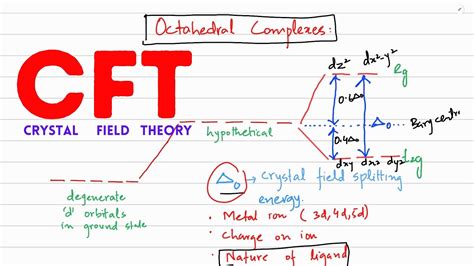 Octahedral Complexes:
CFT
CRYSTAL FIELD THEORY
dz² dx²-y²
eg
0.6Δo
hypothetical
Δo
Bary centre
0.4Δo
dxy dxz dyz
t2g
degenerate
'd' orbitals
in ground state
Δo → Crystal field splitting
energy.
• Metal ion (3d, 4d, 5d)
• Charge on ion
• Nature of ligand